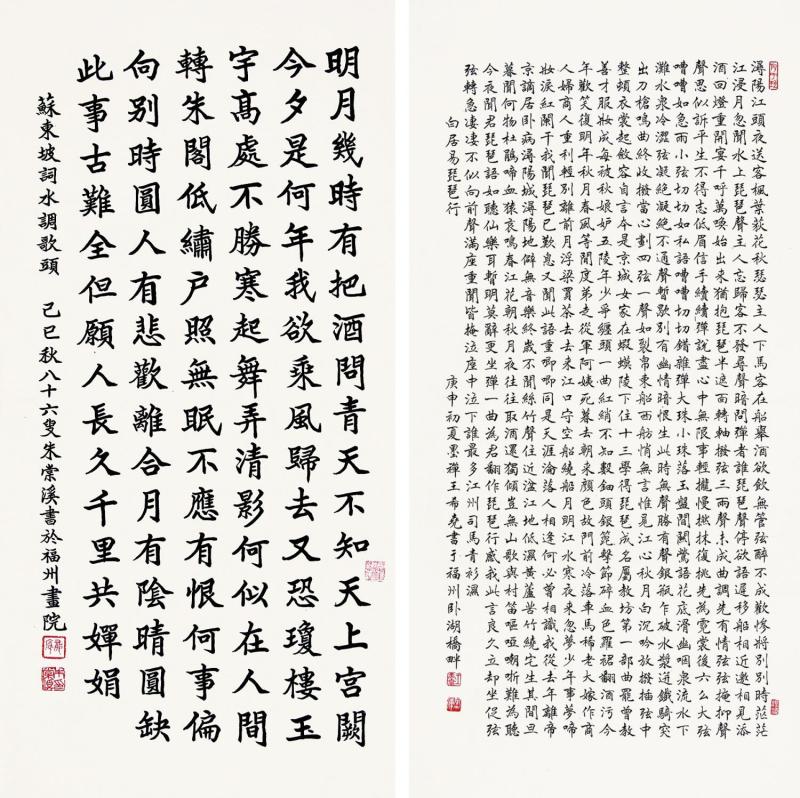 明月幾時有把酒問青天不知天上宮闕
今夕是何年我欲乘風歸去又恐瓊樓玉
宇高處不勝寒起舞弄清影何似在人間
轉朱閣低繡户照無眠不應有恨何事偏
向别時圓人有悲歡離合月有陰晴圓缺
此事古難全但願人長久千里共嬋娟
蘇東坡詞水調歌頭 己巳秋八十六叟朱棠溪書於福州畫院
潯陽江頭夜送客楓葉荻花秋瑟瑟主人下馬客在船舉酒欲飲無管弦醉不成歡慘將別別時茫茫
江浸月忽聞水上琵琶聲主人忘歸客不發尋聲暗問彈者誰琵琶聲停欲語遲移船相近邀相見添
酒回燈重開宴千呼萬喚始出來猶抱琵琶半遮面轉軸撥弦三兩聲未成曲調先有情弦弦掩抑聲
聲思似訴平生不得志低眉信手續續彈說盡心中無限事輕攏慢撚抹復挑先為霓裳後六么大弦
嘈嘈如急雨小弦切切如私語嘈嘈切切錯雜彈大珠小珠落玉盤間關鶯語花底滑幽咽泉流水下
灘水泉冷澀弦凝絕凝絕不通聲暫歇別有幽情暗恨生此時無聲勝有聲銀瓶乍破水漿迸鐵騎突
出刀槍鳴曲終收撥當心劃四弦一聲如裂帛東船西舫悄無言惟見江心秋月白沉吟放撥插弦中
整頓衣裳起斂容自言今是京城女家在蝦蟆陵下住十三學得琵琶成名屬教坊第一部曲罷曾教
善才服妝成每被秋娘妒五陵年少爭纏頭一曲紅綃不知數鈿頭銀篦擊節碎血色羅裙翻酒污今
年歡笑復明年秋月春風等閒度弟走從軍阿姨死暮去朝來顏色故門前冷落車馬稀老大嫁作商
人婦商人重利輕別離前月浮梁買茶去去來江口守空船繞船月明江水寒夜來忽夢少年事夢啼
妝淚紅闌干我聞琵琶已歎息又聞此語重唧唧同是天涯淪落人相逢何必曾相識我從去年離帝
京謫居臥病潯陽城潯陽地僻無音樂終歲不聞絲竹聲住近湓江地低濕黃蘆苦竹繞宅生其間旦
暮聞何物杜鵑啼血猿哀鳴春江花朝秋月夜往往取酒還獨傾豈無山歌與村笛嘔啞嘲哳難為聽
今夜聞君琵琶語如聽仙樂耳暫明莫辭更坐彈一曲為君翻作琵琶行感我此言良久立却坐促弦
弦轉急凄凄不似向前聲滿座重聞皆掩泣座中泣下誰最多江州司馬青衫濕
白居易琵琶行 庚申初夏墨禪王希堯書于福州卧湖橋畔